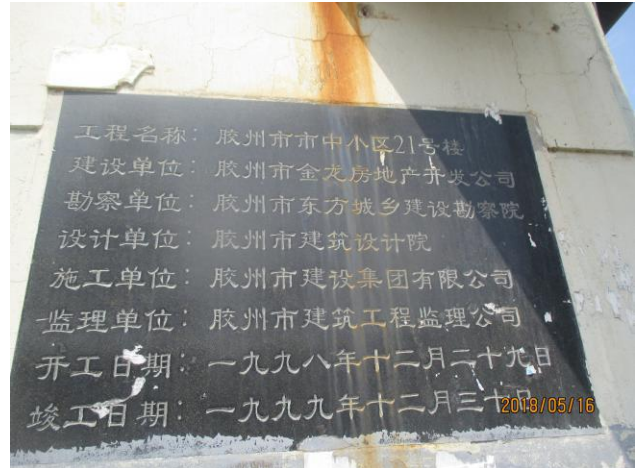 工程名称：胶州市市中小区21号楼
建设单位：胶州市金龙房地产开发公司
勘察单位：胶州市东方城乡建设勘察院
设计单位：胶州市建筑设计院
施工单位：胶州市建设集团有限公司
监理单位：胶州市建筑工程监理公司
开工日期：一九九八年十二月二十九日
竣工日期：一九九九年十二月三十日
2018/05/16